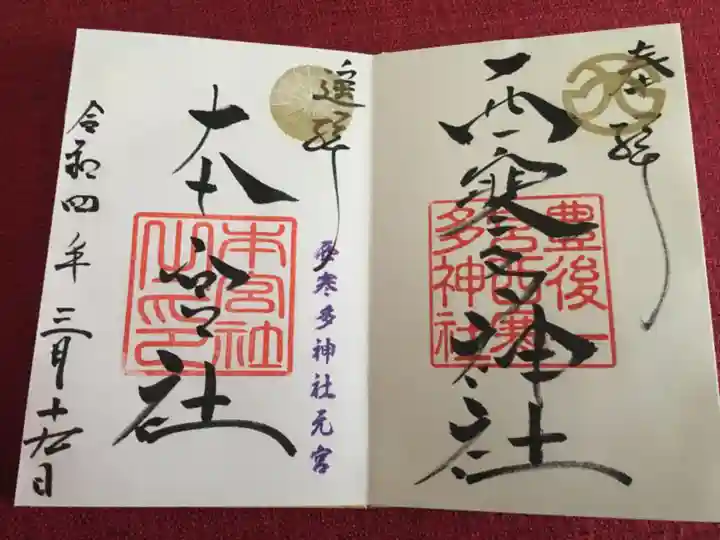 奉拝
西寒多神社
豊後一
宮西寒
多神社
遥拝
本宮社
本宮社
之印
西寒多神社元宮
令和四年 三月